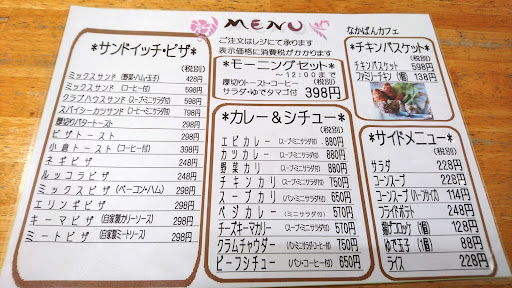 MENU
ご注文はレジにて承ります
表示価格に消費税がかかります
なかぱんカフェ
*サンドイッチ・ピザ*
(税別)
ミックスサンド (野菜・ハム・玉子) 428円
ミックスサンド (コーヒー付) 598円
クラブハウスサンド (スープ・ミニサラダ付) 598円
スパイシーカツサンド (スープ・ミニサラダ付) 598円
厚切りバタートースト 298円
ピザトースト 248円
小倉トースト (コーヒー付) 398円
ネギピザ 248円
ルッコラピザ 248円
ミックスピザ (ベーコン・ハム) 298円
エリンギピザ 298円
キーマピザ (自家製カリーソース) 298円
ミートピザ (自家製ミートソース) 298円
*モーニングセット*
~12:00まで
厚切りトースト・コーヒー (税別)
サラダ・ゆでタマゴ付 398円
*カレー&シチュー*
(税別)
エビカレー (スープ・ミニサラダ付) 880円
カツカレー (スープ・ミニサラダ付) 880円
野菜カリー (スープ・ミニサラダ付) 880円
チキンカリー (スープ・ミニサラダ付) 750円
スープカリー (パン・ミニサラダ付) 650円
ベジカレー (ミニサラダ付) 570円
チーズキーマカリー (スープ・ミニサラダ付) 570円
クラムチャウダー (パン・ミニサラダ・コーヒー付) 650円
ビーフシチュー (パン・コーヒー付) 650円
*チキンバスケット*
(税別)
チキンバスケット 598円
ファミリーチキン (1個) 138円
*サイドメニュー*
(税別)
サラダ 228円
コーンスープ 228円
コーンスープ (ハーフサイズ) 114円
フライドポテト 248円
コロッケ (1個) 128円
ゆで玉子 (1個) 88円
ライス 228円